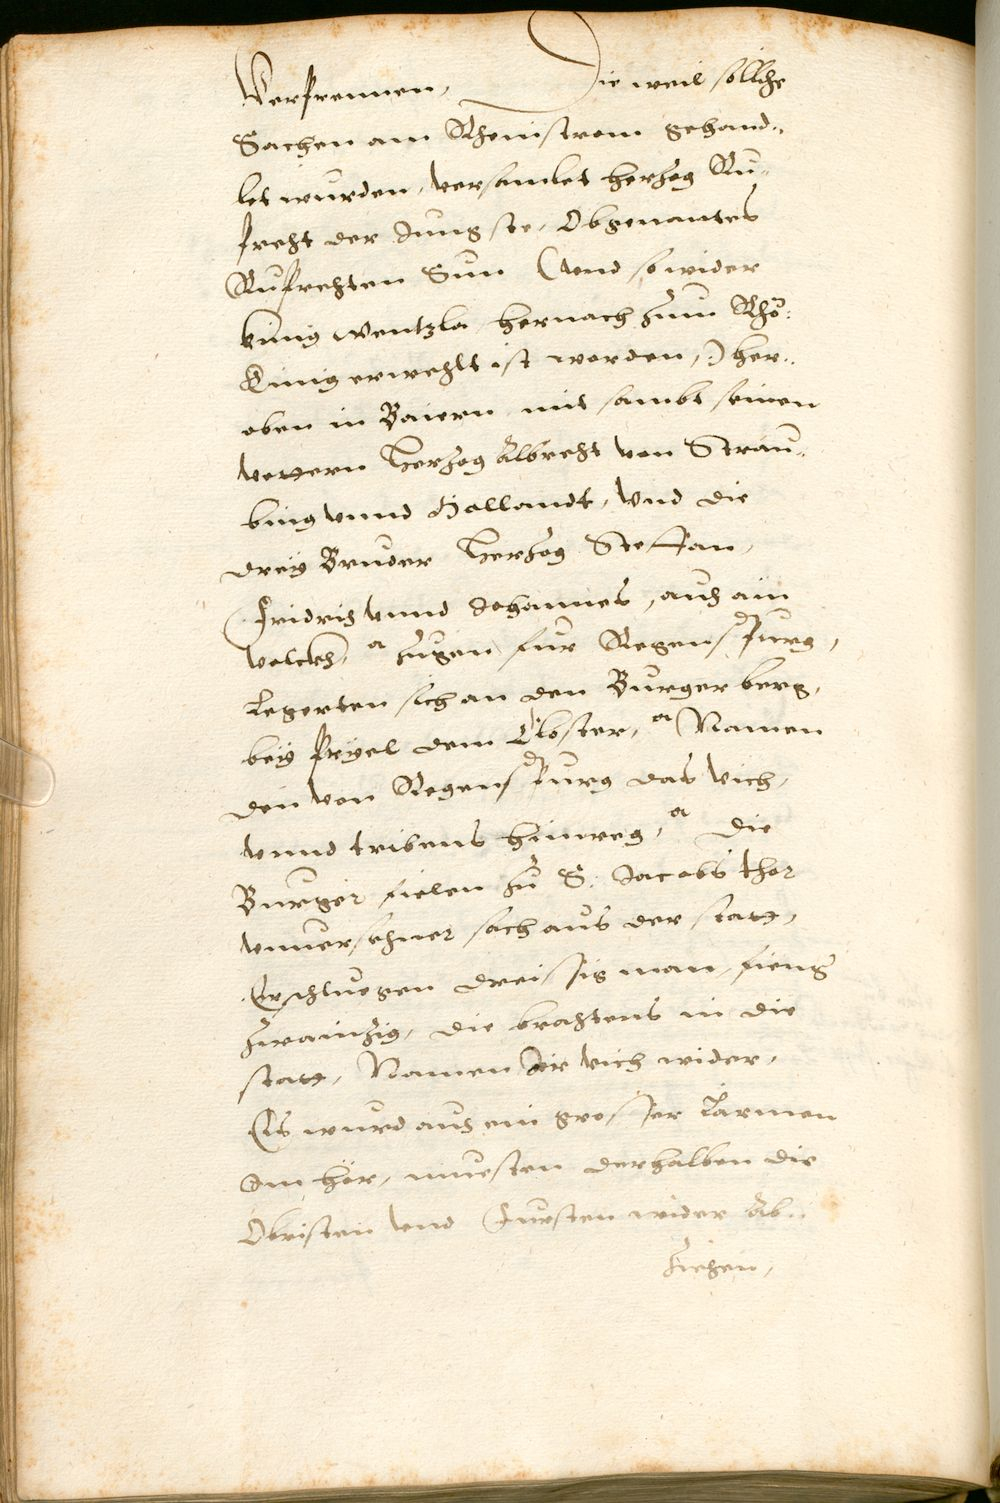 Verprennen, Die weil sollche
Sachen am Rheinstrom gehand..
let wurden, versamlet herzog Ru..
precht der Jungste, Obgenantes
Ruprechten Sun (und so wider
künig Wentzla hernach zum Rhö:
Künig erwehlt ist worden,) her..
oben in Baiern mit sambt seinen
vettern Herzog Albrecht von Strau..
bing unnd Hollandt, Und die
drey Brueder Herzog Steffan,
Fridrich unnd Johannes, auch ain
volckh, zugen für Regenspurg,
Legerten sich an den Burger berg,
bey Pryel dem Closter, Namen
den von Regenspurg das vich,
unnd tribens hinweg, Die
Burger fielen zu S. Jacobs thor
unversehner sach aus der statt,
Erschluegen dreissig man, fieng
zwainzig, die brachtens in die
statt, Namen Ir vich wider,
Es wurd auch ein grosser Larmen
Im hör, muesten derhalben die
Obristen und Fursten wider Ab..
ziehen,